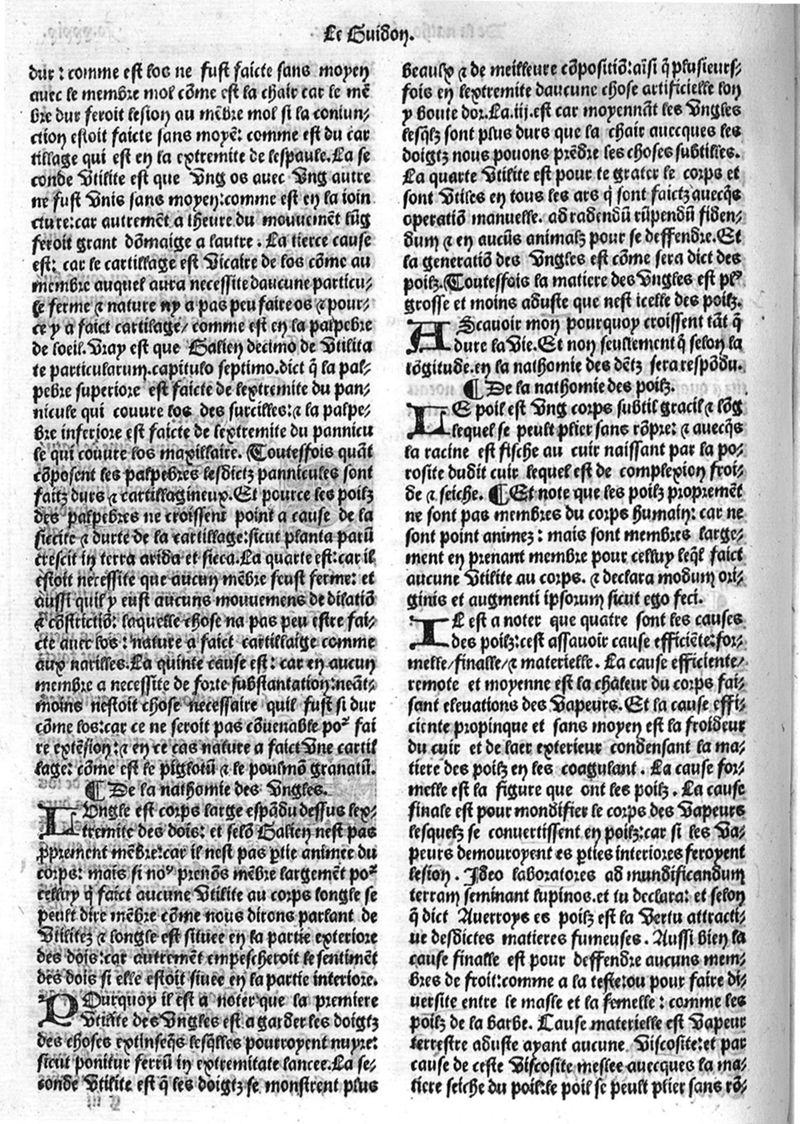 Le Guidon.
dur: comme est los ne fust faicte sans moyen
avec le membre mol cõme est la chair car le mẽ
bre dur feroit lesion au mẽbre mol si la coniun⸗
ction estoit faicte sans moyẽ: comme est du car
tillage qui est en la extremite de lespaule. La se
conde Utilite est que Ung os avec Ung autre
ne fust Unis sans moyen: comme est en la ioin
cture: car autremẽt a lheure du mouvemẽt lũg
feroit grant dõmaige a lautre. La tierce cause
est: car le cartillage est Vicaire de los cõme au
membre auquel aura necessite daucune particu⸗
le ferme & nature ny a pas peu faire os & pour⸗
ce y a faict cartilage/ comme est en la palpebre
de loeil. Vray est que Galien decimo de Utilita
te particularum. capitulo septimo. dict q̃ la pal⸗
pebre superiore est faicte de lextremite du pan⸗
nicule qui couvre los des surcilles: & la palpe⸗
bre inferiore est faicte de lextremite du pannicu
le qui couvre los maxillaire. Toutesfois quãt
cõposent les palpebres lesdictz pannicules sont
faitz durs & cartillagineux. Et pource les poilz
des palpebres ne croissent point a cause de la
siccite & durte de la cartillage: sicut planta parũ
crescit in terra arida et sicca. La quarte est: car il
estoit necessite que aucun mẽbre feust ferme: et
aussi quil y eust aucuns mouvemens de dilatiõ
& cõstrictiõ: laquelle chose na pas peu estre fai⸗
cte aver los: nature a faict cartillaige comme
aux narilles. La quinte cause est: car en aucun
membre a necessite de forte substantation: neãt⸗
moins nestoit chose necessaire quil fust si dur
cõme los: car ce ne seroit pas cõvenable poᷣ fai
re extẽsion: & en ce cas nature a faict Une cartil
lage: cõme est le piglotũ & le poulmõ granatũ.
¶ De la nathomie des Ungles.
LUngle est corps large espãdu dessus lex⸗
tremite des dois: et selõ Galien nest pas
ꝓprement mẽbre: car il nest pas ꝑtie animee du
corps: mais si noᷣ prenõs mẽbre largemẽt poᷣ
celluy q̃ faict aucune Utilite au corps longle se
peult dire mẽbre cõme nous dirons parlant de
Utilitez & longle est situee en la partie exteriore
des dois: car autremẽt empescheroit le sentimẽt
des dois si elle estoit situee en la partie interiore.
POurquoy il est a noter que la premiere
Utilite des Ungles est a garder les doigtz
des choses extinseq̃s lesq̃lles pourroyent nuyre:
sicut ponitur ferrũ in extremitate lancee. La se⸗
conde Utilite est q̃ les doigtz se monstrent plus
beaulx & de meilleure cõpositiõ: aĩsi q̃ plusieurs⸗
fois en lextremite daucune chose artificielle lon
y boute dor. La.iij. est car moyennãt les Ungles
lesq̃lz sont plus durs que la chair avecques les
doigtz nous pouons prẽdre les choses subtilles.
La quarte Utilite est pour te grater le corps et
sont Utiles en tous les ars q̃ sont faictz avecq̃s
operatiõ manuelle. ad radendũ rũpendũ fiden⸗
dum & en aucũs animalz pour se deffendre. Et
la generatiõ des Ungles est cõme sera dict des
poilz. Toutesfois la matiere des Ungles est plᷣ
grosse et moins aduste que nest icelle des poilz.
ASçavoir mon pourquoy croissent tãt q̃
dure la Vie. Et non seullement q̃ selon la
lõgitude. en la nathomie des dẽtz sera respõdu.
¶ De la nathomie des poilz.
LE poil est Ung corps subtil gracil & lõg
lequel se peult plier sans rõpre: & avecq̃s
la racine est fische au cuir naissant par la po⸗
rosite dudit cuir lequel est de complexion froi⸗
de & seiche. ¶ Et note que les poilz propremẽt
ne sont pas membres du corps humain: car ne
sont point animez: mais sont membres large⸗
ment en prenant membre pour celluy leq̃l faict
aucune Utilite au corps. & declara modum ori⸗
ginis et augmenti ipsorum sicut ego feci.
IL est a noter que quatre sont les causes
des poilz: cest assavoir cause efficiẽte: for⸗
melle/ finalle/ & materielle. La cause efficiente/
remote et moyenne est la chaleur du corps fai⸗
sant elevations des Vapeurs. Et la cause effi⸗
ciente propinque et sans moyen est la froideur
du cuir et de laer exterieur condensant la ma⸗
tiere des poilz en les coagulant. La cause for⸗
melle est la figure que ont les poilz. La cause
finale est pour mondifier le corps des Vapeurs
lesquelz se convertissent en poilz: car si les Va⸗
peurs demouroyent es ꝑties interiores feroyent
lesion. Ideo laboratores ad mundificandum
terram seminant lupinos. et tu declara: et selon
q̃ dict Averroys es poilz est la Vertu attracti⸗
ve desdictes matieres fumeuses. Aussi bien la
cause finalle est pour deffendre aucuns mem⸗
bres de froit: comme a la teste: ou pour faire di⸗
versite entre le masse et la femelle: comme les
poilz de la barbe. Cause materielle est Vapeur
terrestre aduste ayant aucune Viscosite: et par
cause de ceste Viscosite meslee avecques la ma⸗
tiere seiche du poil: le poil se peult plier sans rõ⸗